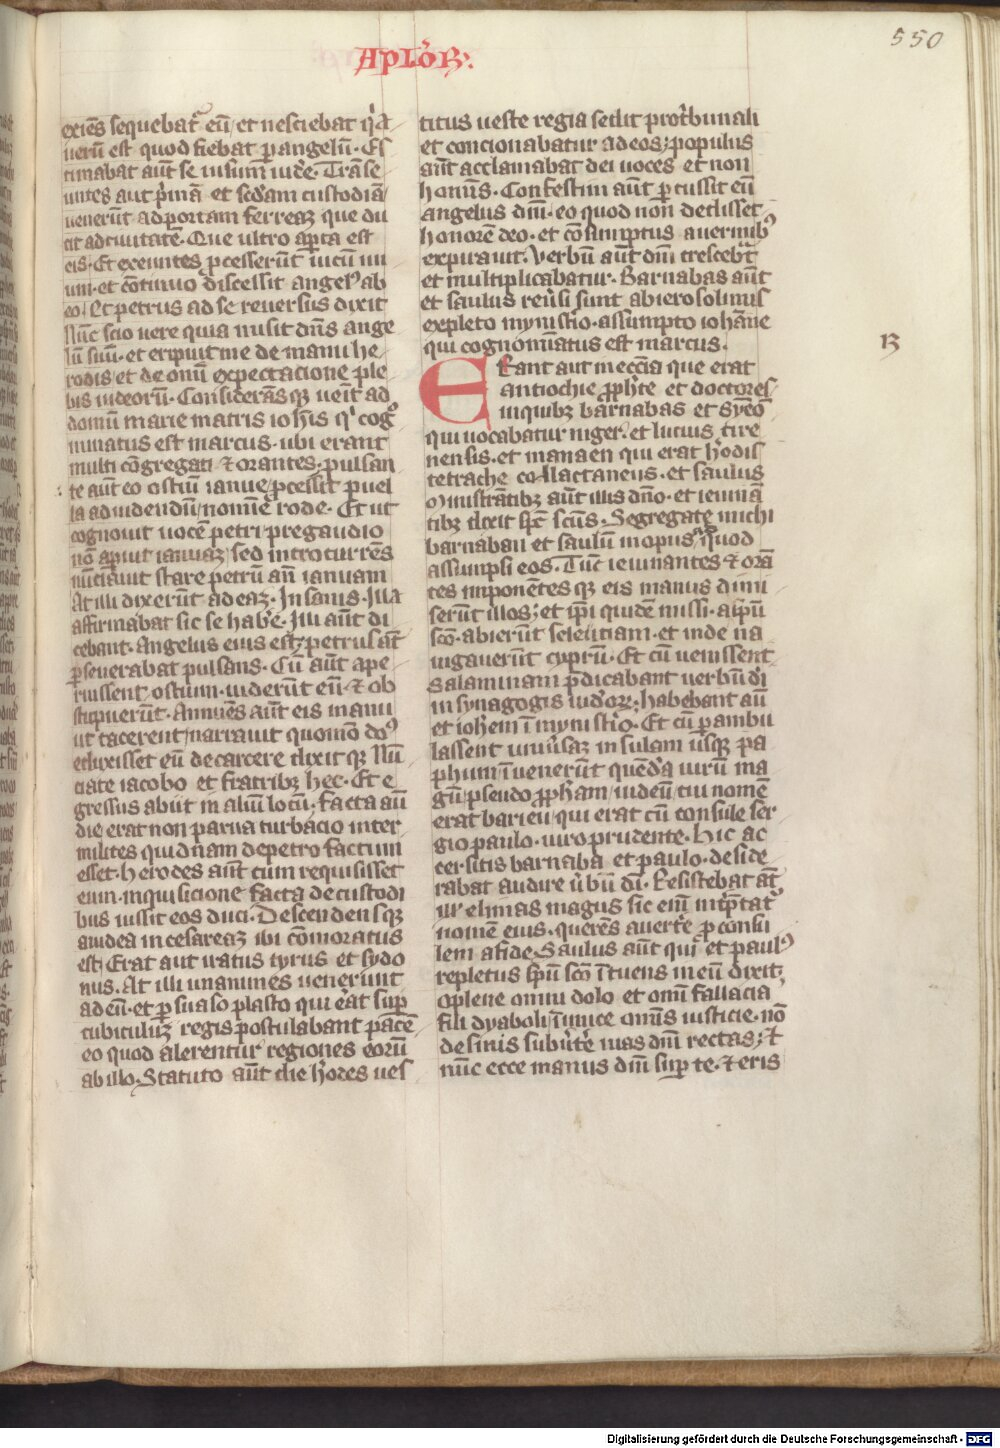 550
Apl'oꝝ.
exiēs sequebat᷑ eū / et nesciebat qͥa
uerū est quod fiebat ꝑ angelū · Es
timabat aūt se uisum̄ uid'e · Trāse
untes aut p̓mā et sc̄dam custodiā
uenerūt ad portam ferreaꝫ que du
cit ad ciuitatē · Que ultro aꝑta est
eis · Et exeuntes ꝓcesserūt uicū unu
um · et cōtinuo discessit angelꝰ ab
eo · Et petrus ad se reuersus dixit
Nūc scio uere quia misit dn̄s ange
lū suū · et eripuit me de manu he
rodis / et de om̄i expectacione ple
bis iudeorū · Considerās qꝫ ueīt ad
domū marie matris ioh'is qͥ cogͦ
minatus est marcus · ubi erant
multi cōgregati ⁊ orantes · pulsan
te aūt eo ostiū ianue / ꝓcessit puel
la ad uidendū / nomīe rode · Et ut
cognouit uocē petri / pre gaudio
nō aꝑuit ianuaꝫ / sed intro currēs
nūciauit stare petrū an̄ ianuam
At illi dixerūt ad eaꝫ · Insanis · Illa
affirmabat sic se hab'e · Illi aūt di
cebant · Angelus eius est · petrus aūt
ꝑseuerabat pulsans · Cū aūt ape
ruissent ostium · uiderūt eū · ⁊ ob
stupuerūt · Annuēs aūt eis manu
ut tacerent / narrauit quomō dōs
eduxisset eū de carcere dixit qꝫ Nū
ciate iacobo et fratribꝫ hec · Et e
gressus abiit in aliū locū · facta aūt
die erat non parua turbacio inter
milites quidnam de petro factum
esset · herodes aūt cum requisisset
eum · inquisicione facta de custodi
bus iussit eos duci · Descendensqꝫ
a iudea in cesareaꝫ ibi cōmoratus
est · Erat aut iratus tyrus et sydo
nus · At illi unanimes uenerunt
ad eū · et ꝑsuaso plasto qui eāt suꝑ
cubiculuꝫ regis postulabant pacē
eo quod alerentur regiones eorū
ab illo · Statuto aūt die h'odes ues
titus ueste regia sedit pro t'bunali
et concionabatur ad eos · populus
aūt acclamabat dei uoces et non
hoīnis · Confestim aūt ꝑcussit eū
angelus dn̄i · eo quod non dedisset
honorē deo · et cōsumptus a uermibꝰ
expirauit · Verbū aūt dn̄i crescebat
et multiplicabatur · Barnabas aūt
et saulus reu'si sunt ab ierosolimis
expleto mynist'io · assumpto iohāne
qui cognomīatus est marcus ·
13
Erant aut in eccīa que erat
antiochie ꝓph'te et doctores
in quibꝫ barnabas et syeō
qui uocabatur niger · et lucius cire
nensis · et manaen qui erat h'odis
tetrache collactaneus · et saulus
Ministrātibꝫ aūt illis dn̄o · et ieiunā
tibꝫ dixit sp̄c sc̄us · Segregate michi
barnaban et saulū in opus ad quod
assumpsi eos · Tūc ieiunantes ⁊ orā
tes inponētes qꝫ eis manus dimi
serūt illos · et ip̄i quidē missi · a sp̄u
sc̄o · abierūt seleuciam · et inde na
uigauerūt cyprū · Et cū uenissent
Salaminam p̄dicabant uerbū di
in synagogis iud'oꝝ · habebant aūt
et ioh'em ī mynist'io · Et cū ꝑambu
lassent uniu'saꝫ insulam usqꝫ pa
phum / īuenerūt quēd'a uirū ma
gū / pseudo ꝓph'am / iudeū / cui nomē
erat barieu / qui erat cū consule ser
gio paulo · uiro prudente · Hic ac
cersitis barnaba et paulo · deside
rabat audire u'bū di · Resistebat aūt
ill' elimas magus sic enī int'p̄tat᷑
nomē eius · querēs auert'e ꝓconsu
lem a fide · Saulus aūt qui et paulꝰ
repletus sp̄u sc̄o ītuens in eū dixit ·
O plene omni dolo et om̄i fallacia
fili dyaboli / īimice om̄is iusticie · nō
desinis subu't'e uias dn̄i rectas · ⁊
nūc ecce manus dn̄i suꝑ te · ⁊ eris
Digitalisierung gefördert durch die Deutsche Forschungsgemeinschaft - DFG